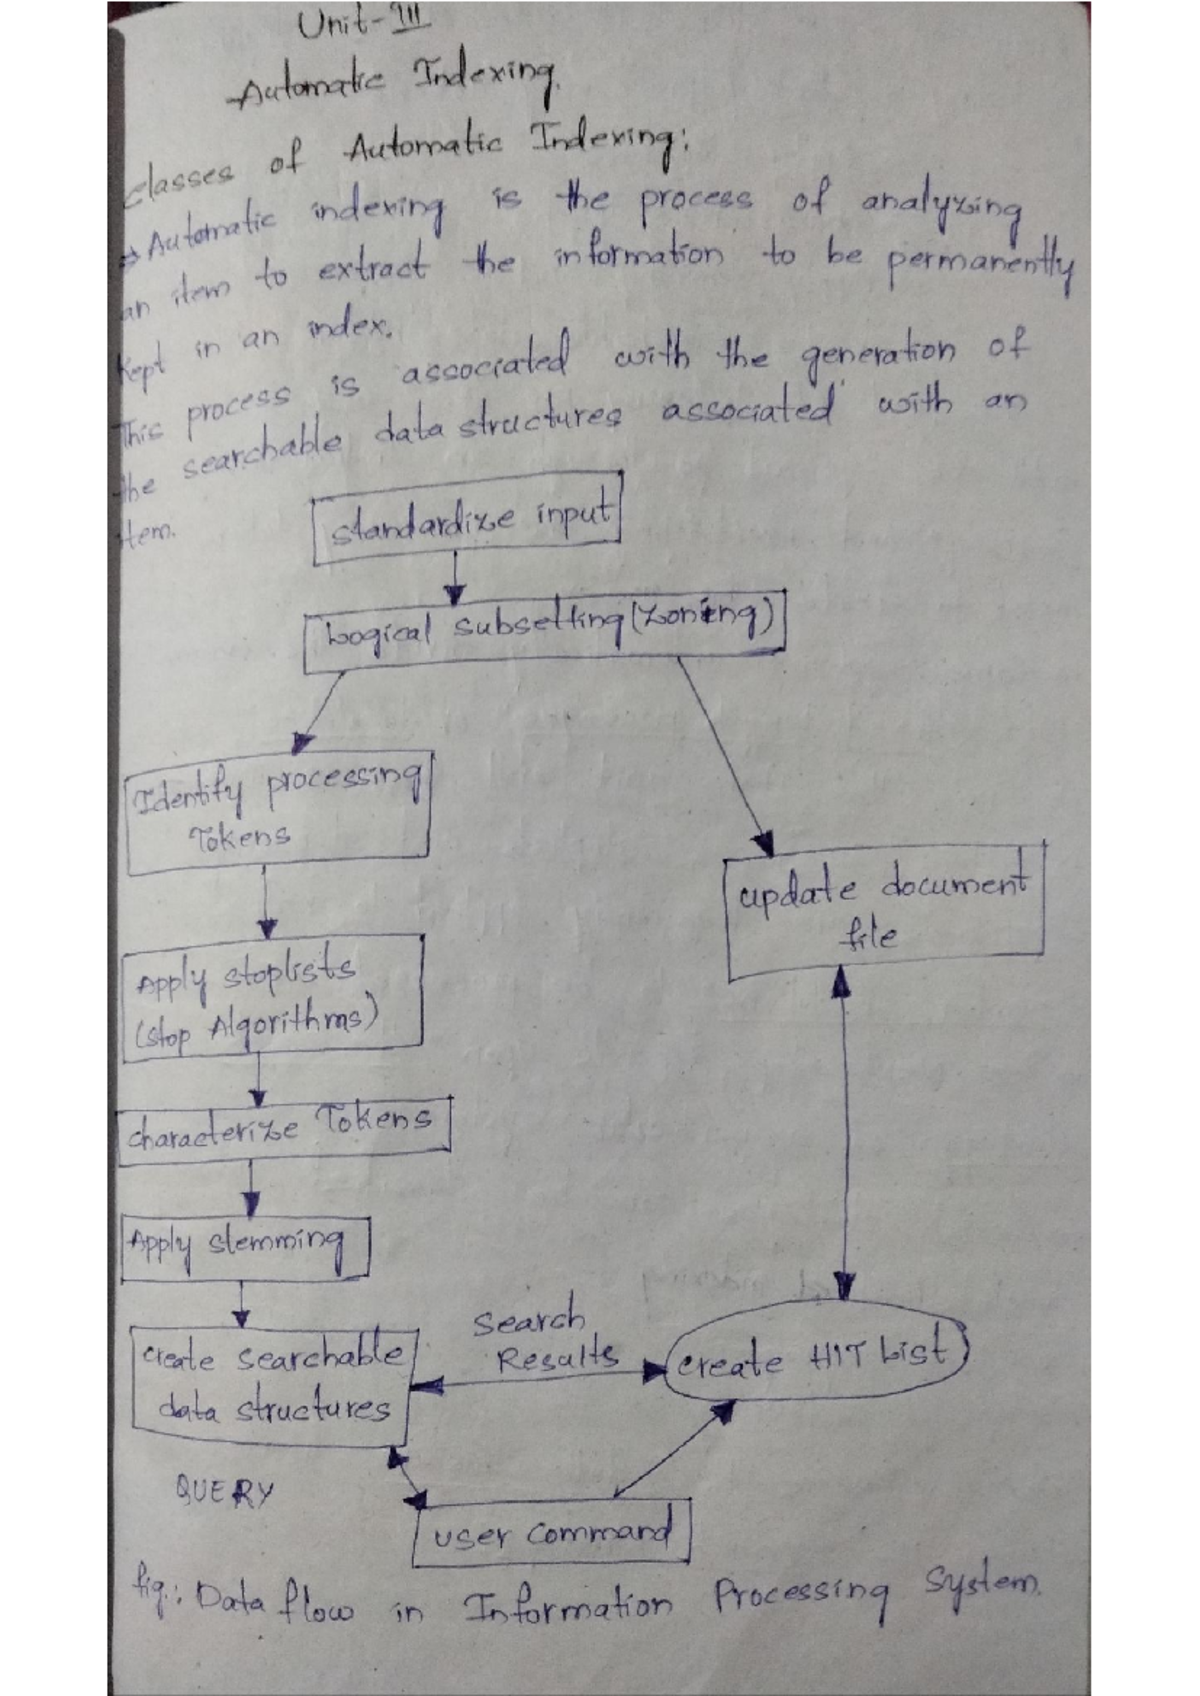 Unit-III
Automatic Indexing.
classes of Automatic Indexing:
⇒ Automatic indexing is the process of analyzing
an item to extract the information to be permanently
kept in an index.
This process is associated with the generation of
the searchable data structures associated with an
item.
standardize input
Logical subsetting (zoning)
Identify processing
Tokens
update document
file
Apply stoplists
(stop Algorithms)
characterize Tokens
Apply stemming
Search
Results
create searchable
data structures
create HIT List
QUERY
user command
fig.: Data flow in Information Processing System.